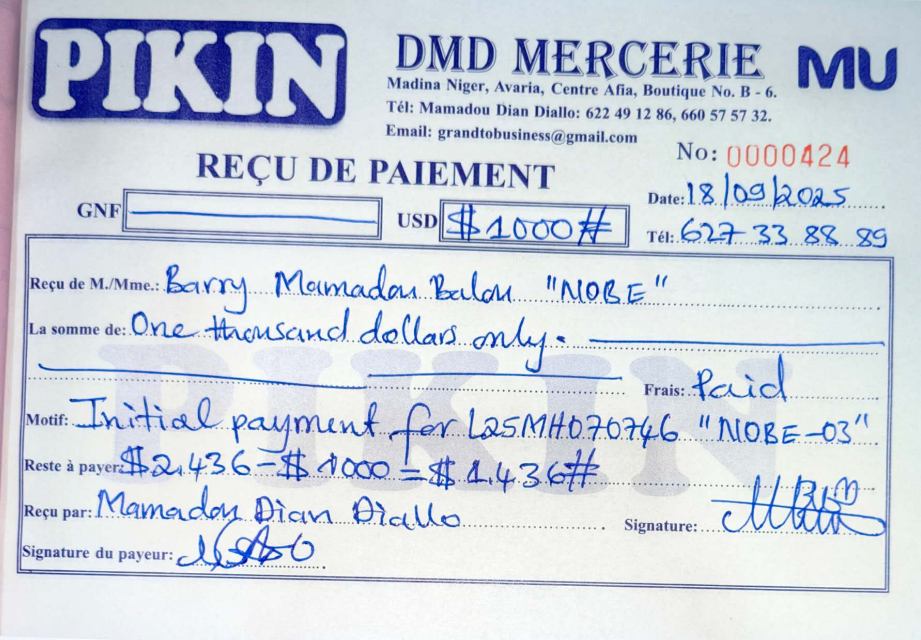 PIKIN
DMD MERCERIE
MU
Madina Niger, Avaria, Centre Afia, Boutique No. B - 6.
Tél: Mamadou Dian Diallo: 622 49 12 86, 660 57 57 32.
Email: grandtobusiness@gmail.com
No: 0000424
REÇU DE PAIEMENT
Date: 18/09/2025
GNF
USD $1000#
Tél: 627 33 88 89
Reçu de M./Mme.: Barry Mamadou Balou "NOBE"
La somme de: One thousand dollars only.
Frais: Paid
Motif: Initial payment for L25MH070746 "NOBE-03"
Reste à payer: $2.436-$1000=$1.436#
Reçu par: Mamadou Dian Diallo
Signature:
Signature du payeur:
PIKIN